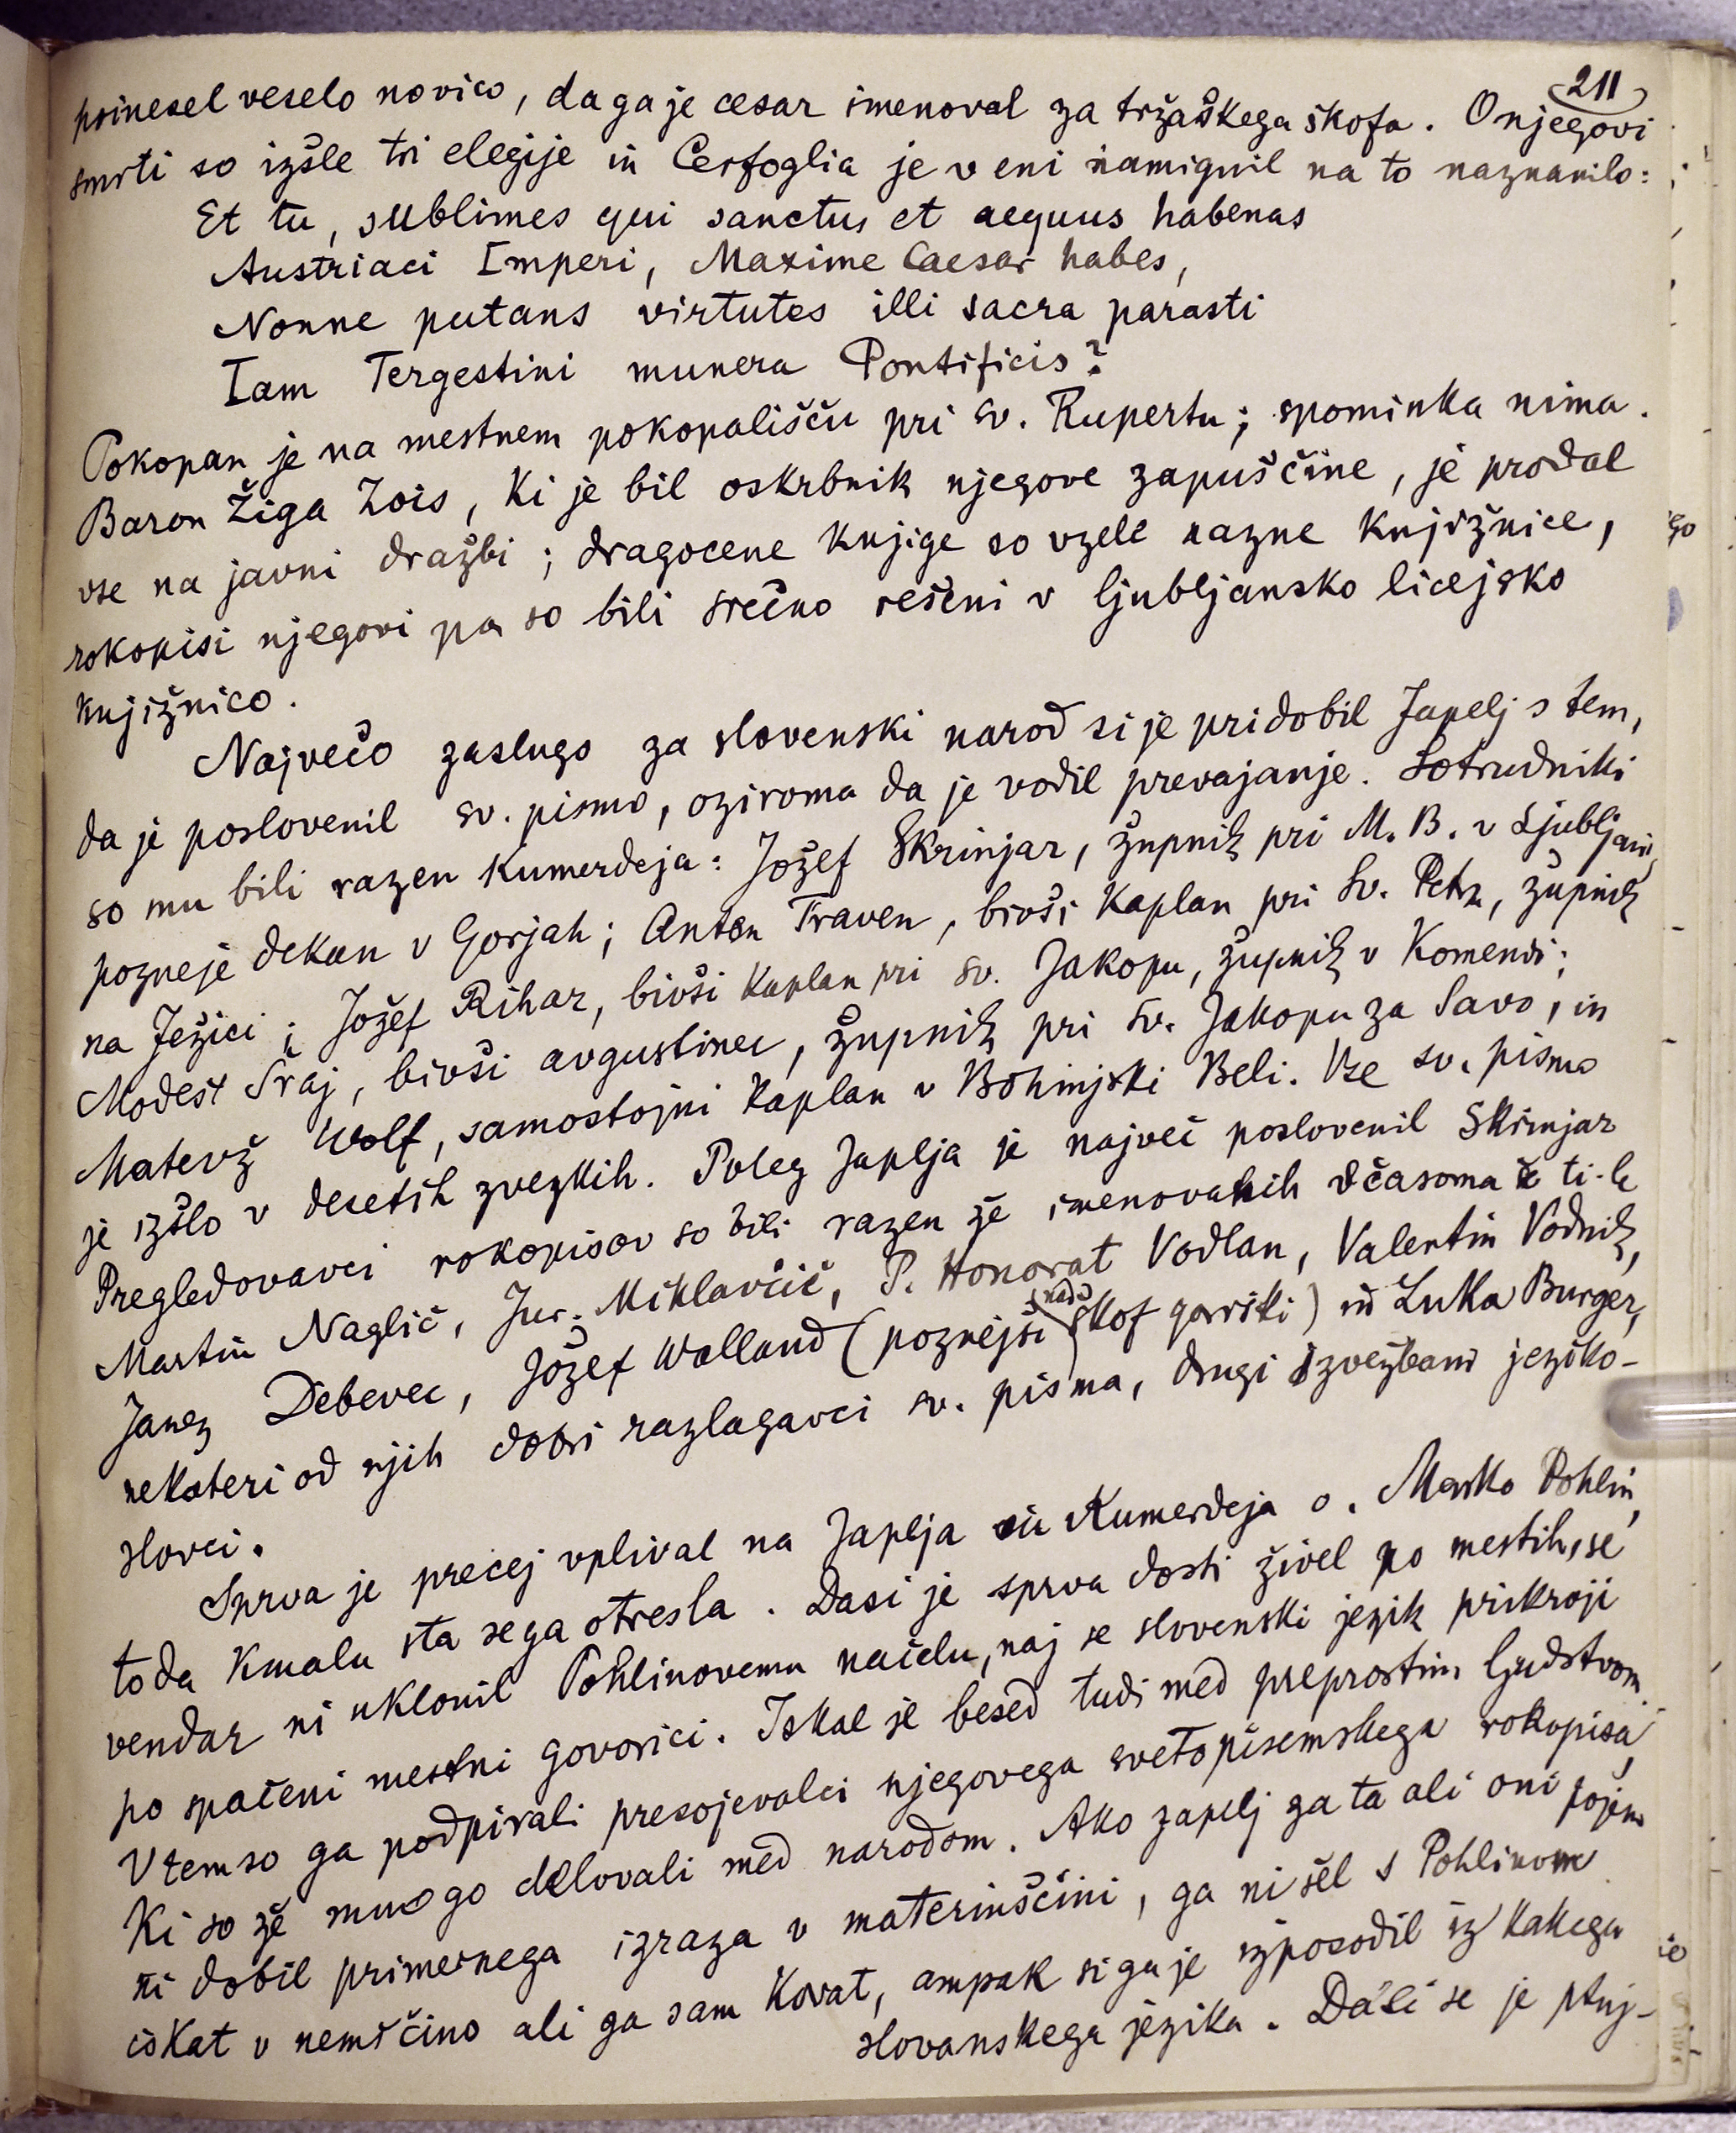 211
prinesel veselo novico, da ga je cesar imenoval za tržaškega škofa. O njegovi
smrti so izšle tri elegije in Cerfoglia je v eni namignil na to naznanilo:
Et tu, sublimes qui sanctus et aequus habenas
Austriaci Imperi, Maxime Caesar habes,
Nonne putans virtutes illi sacra parasti
Iam Tergestini munera Pontificis?
Pokopan je na mestnem pokopališču pri sv. Rupertu; spominka nima.
Baron Žiga Zois, ki je bil oskrbnik njegove zapuščine, je prodal
vse na javni dražbi; dragocene knjige so vzele razne knjižnice,
rokopisi njegovi pa so bili srečno rešeni v ljubljansko licejsko
knjižnico.
Največo zaslugo za slovenski narod si je pridobil Japelj s tem,
da je poslovenil sv. pismo, oziroma da je vodil prevajanje. Sotrudniki
so mu bili razen Kumerdeja: Jožef Škrinjar, župnik pri M. B. v Ljubljani,
pozneje dekan v Gorjah; Anton Traven, bivši kaplan pri Sv. Petru, župnik
na Ježici; Jožef Rihar, bivši kaplan pri sv. Jakopu, župnik v Komendi;
Modest Šraj, bivši avgustinec, župnik pri sv. Jakopu za Savo, in
Matevž Wolf, samostojni kaplan v Bohinjski Beli. Vse sv. pismo
je izšlo v desetih zvezkih. Poleg Japlja je največ poslovenil Škrinjar
Pregledovavci rokopisov so bili razen že imenovanih včasoma še ti-le
Martin Naglič, Jur. Miklavčič, P. Honorat Vodlan, Valentin Vodnik,
Janez Debevec, Jožef Walland (poznejši nadškof goriški) in Luka Burger,
nekateri od njih dobri razlagavci sv. pisma, drugi izvežbani jeziko-
slovci.
Sprva je precej vplival na Japlja in Kumerdeja o. Marko Pohlin,
toda kmalu sta se ga otresla. Dasi je sprva dosti živel po mestih, se
vendar ni uklonil Pohlinovemu načelu, naj se slovenski jezik prikroji
po spačeni mestni govorici. Iskal je besed tudi med preprostim ljudstvom
V tem so ga podpirali presojevalci njegovega svetopisemskega rokopisa,
ki so že mnogo delovali med narodom. Ako Japelj ga ta ali oni pojem
ni dobil primernega izraza v materinščini, ga ni šel s Pohlinom
iskat v nemščino ali ga sam kovat, ampak si ga je izposodil iz kakega
slovanskega jezika. Dasi se je ptuj-